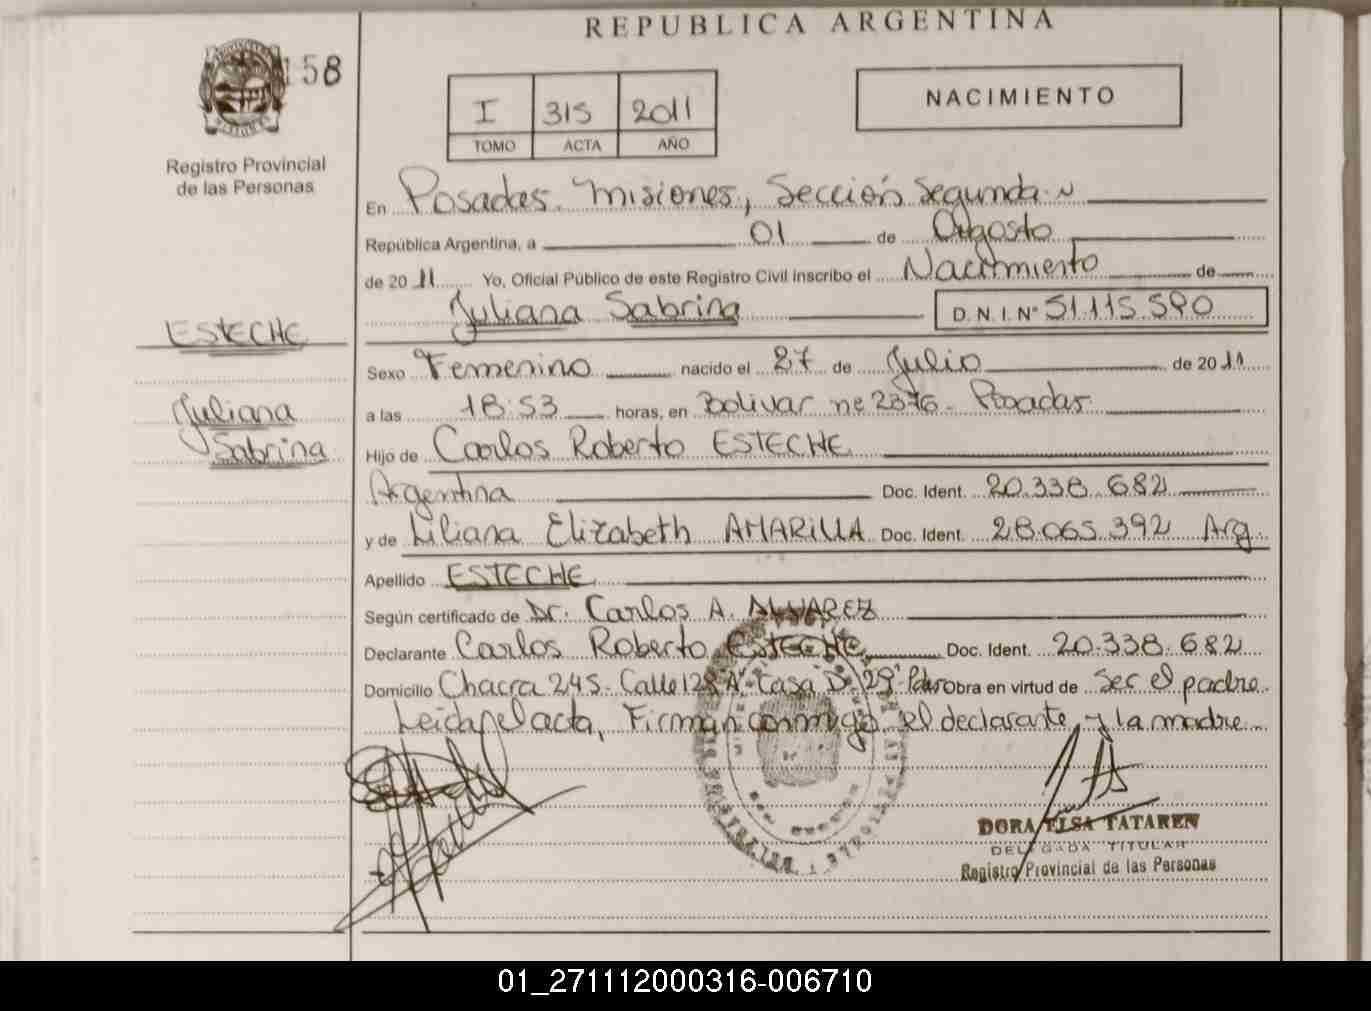 REPUBLICA ARGENTINA
158
I 315 2011
TOMO ACTA AÑO
NACIMIENTO
Registro Provincial
de las Personas
En Posadas. Misiones, Sección Segunda
República Argentina, a 01 de Agosto
de 2011 Yo, Oficial Público de este Registro Civil inscribo el Nacimiento de
Juliana Sabrina D.N.I. Nº 51.115.590
ESTECHE
Juliana
Sabrina
Sexo Femenino nacido el 27 de Julio de 2011
a las 18:53 horas, en Bolivar nº 2376 - Posadas
Hijo de Carlos Roberto ESTECHE
Argentina Doc. Ident. 20.338.682
y de Liliana Elizabeth AMARILLA Doc. Ident. 28.065.392 Arg.
Apellido ESTECHE
Según certificado de Dr. Carlos A. ALVAREZ
Declarante Carlos Roberto ESTECHE Doc. Ident. 20.338.682
Domicilio Chacra 245. Calle 128 A Casa D 29 Obra en virtud de Ser el padre
Leida el acta, Firman conmigo el declarante, y la madre
DORA ELSA TATAREN
DELEGADA TITULAR
Registro Provincial de las Personas
01_271112000316-006710